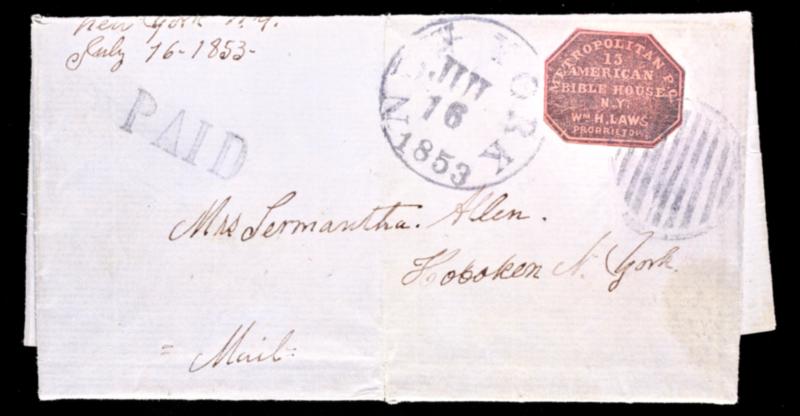 New York N.Y.
July 16-1853-
PAID
NEW YORK
JUL
16
1853
METROPOLITAN P.O.
13
AMERICAN
BIBLE HOUSE
N.Y.
WM H. LAWS
PRORRIETOR
Mrs Sermantha. Allen.
Hoboken N. York.
= Mail=